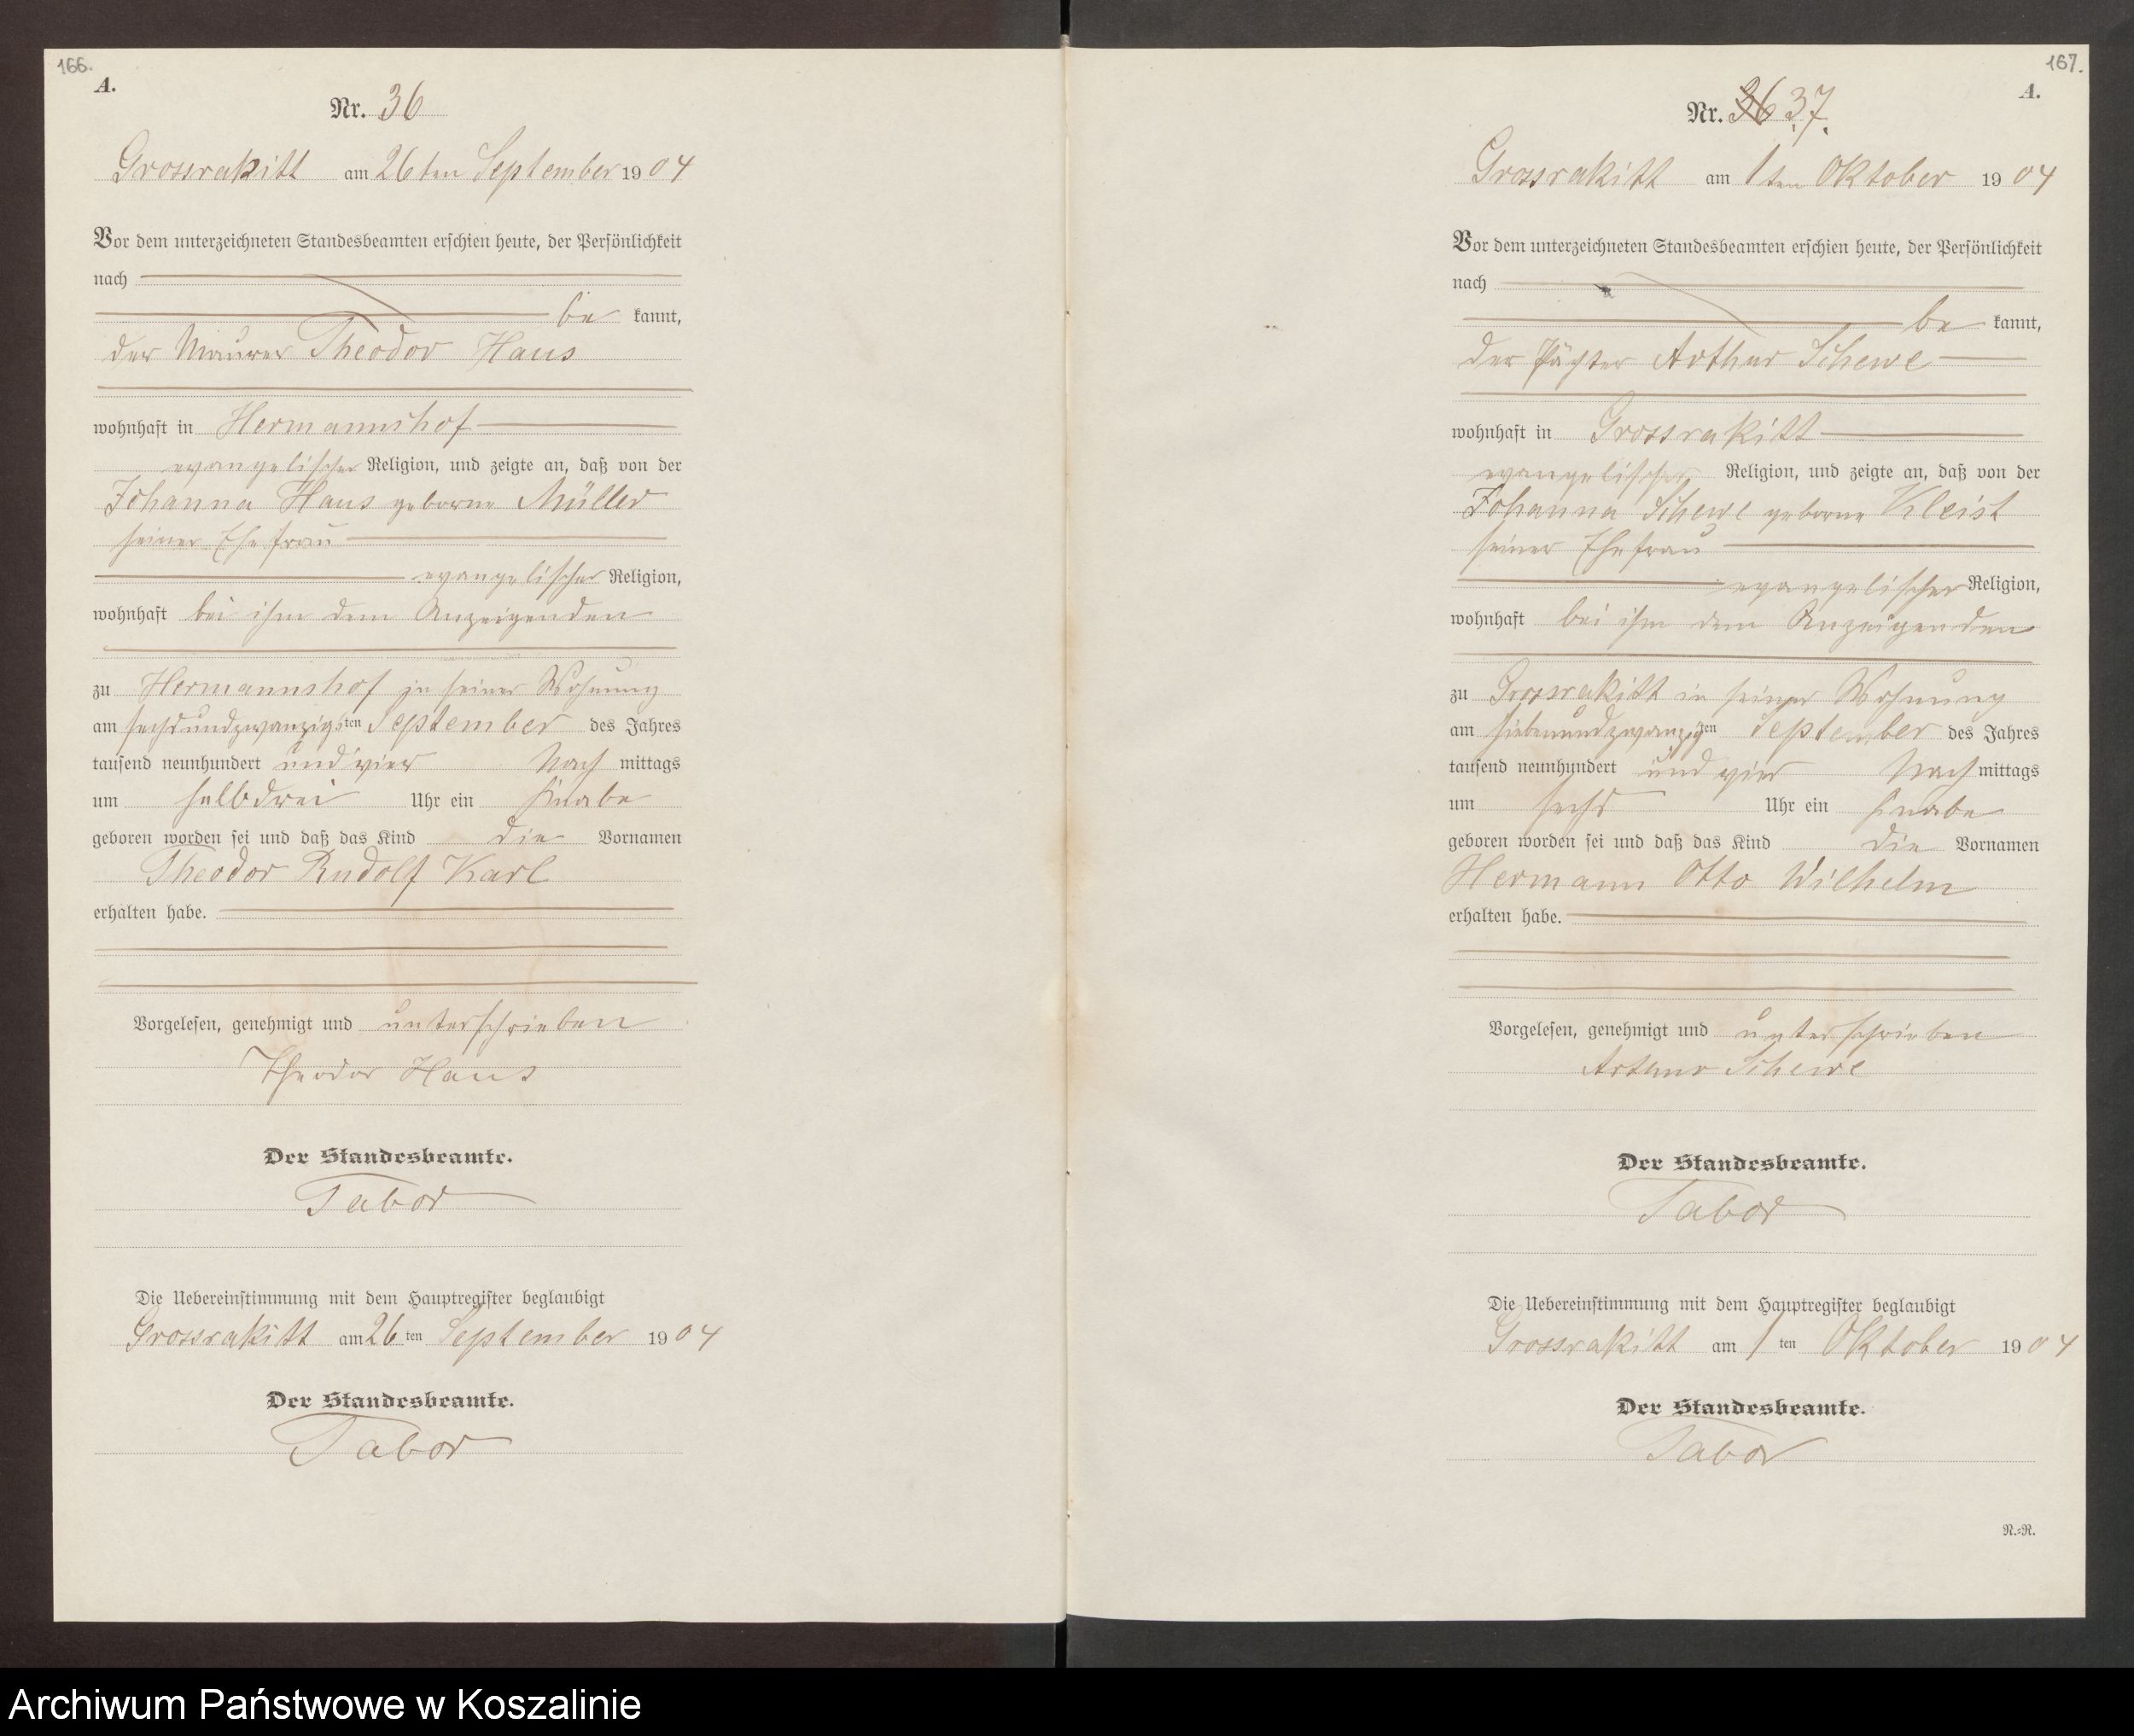 166.
A.
Nr. 36
Grossrakitt am 26ten September 1904
Vor dem unterzeichneten Standesbeamten erschien heute, der Persönlichkeit
nach
be kannt,
der Maurer Theodor Haus
wohnhaft in Hermannshof
evangelischer Religion, und zeigte an, daß von der
Johanna Haus geborne Müller
seiner Ehefrau
evangelischer Religion,
wohnhaft bei ihm dem Anzeigenden
zu Hermannshof in seiner Wohnung
am sechsundzwanzigsten September des Jahres
tausend neunhundert und vier Nach mittags
um halbdrei Uhr ein Knabe
geboren worden sei und daß das Kind die Vornamen
Theodor Rudolf Karl
erhalten habe.
Vorgelesen, genehmigt und unterschrieben
Theodor Haus
Der Standesbeamte.
Tabor
Die Uebereinstimmung mit dem Hauptregister beglaubigt
Grossrakitt am 26 ten September 1904
Der Standesbeamte.
Tabor
167.
A.
Nr. 36 37.
Grossrakitt am 1ten Oktober 1904
Vor dem unterzeichneten Standesbeamten erschien heute, der Persönlichkeit
nach
be kannt,
der Pächter Arthur Schewe
wohnhaft in Grossrakitt
evangelischer Religion, und zeigte an, daß von der
Johanna Schewe geborne Kleist
seiner Ehefrau
evangelischer Religion,
wohnhaft bei ihm dem Anzeigenden
zu Grossrakitt in seiner Wohnung
am siebenundzwanzigsten September des Jahres
tausend neunhundert und vier Nach mittags
um sechs Uhr ein Knabe
geboren worden sei und daß das Kind die Vornamen
Hermann Otto Wilhelm
erhalten habe.
Vorgelesen, genehmigt und unterschrieben
Arthur Schewe
Der Standesbeamte.
Tabor
Die Uebereinstimmung mit dem Hauptregister beglaubigt
Grossrakitt am 1 ten Oktober 1904
Der Standesbeamte.
Tabor
N.=R.
Archiwum Państwowe w Koszalinie